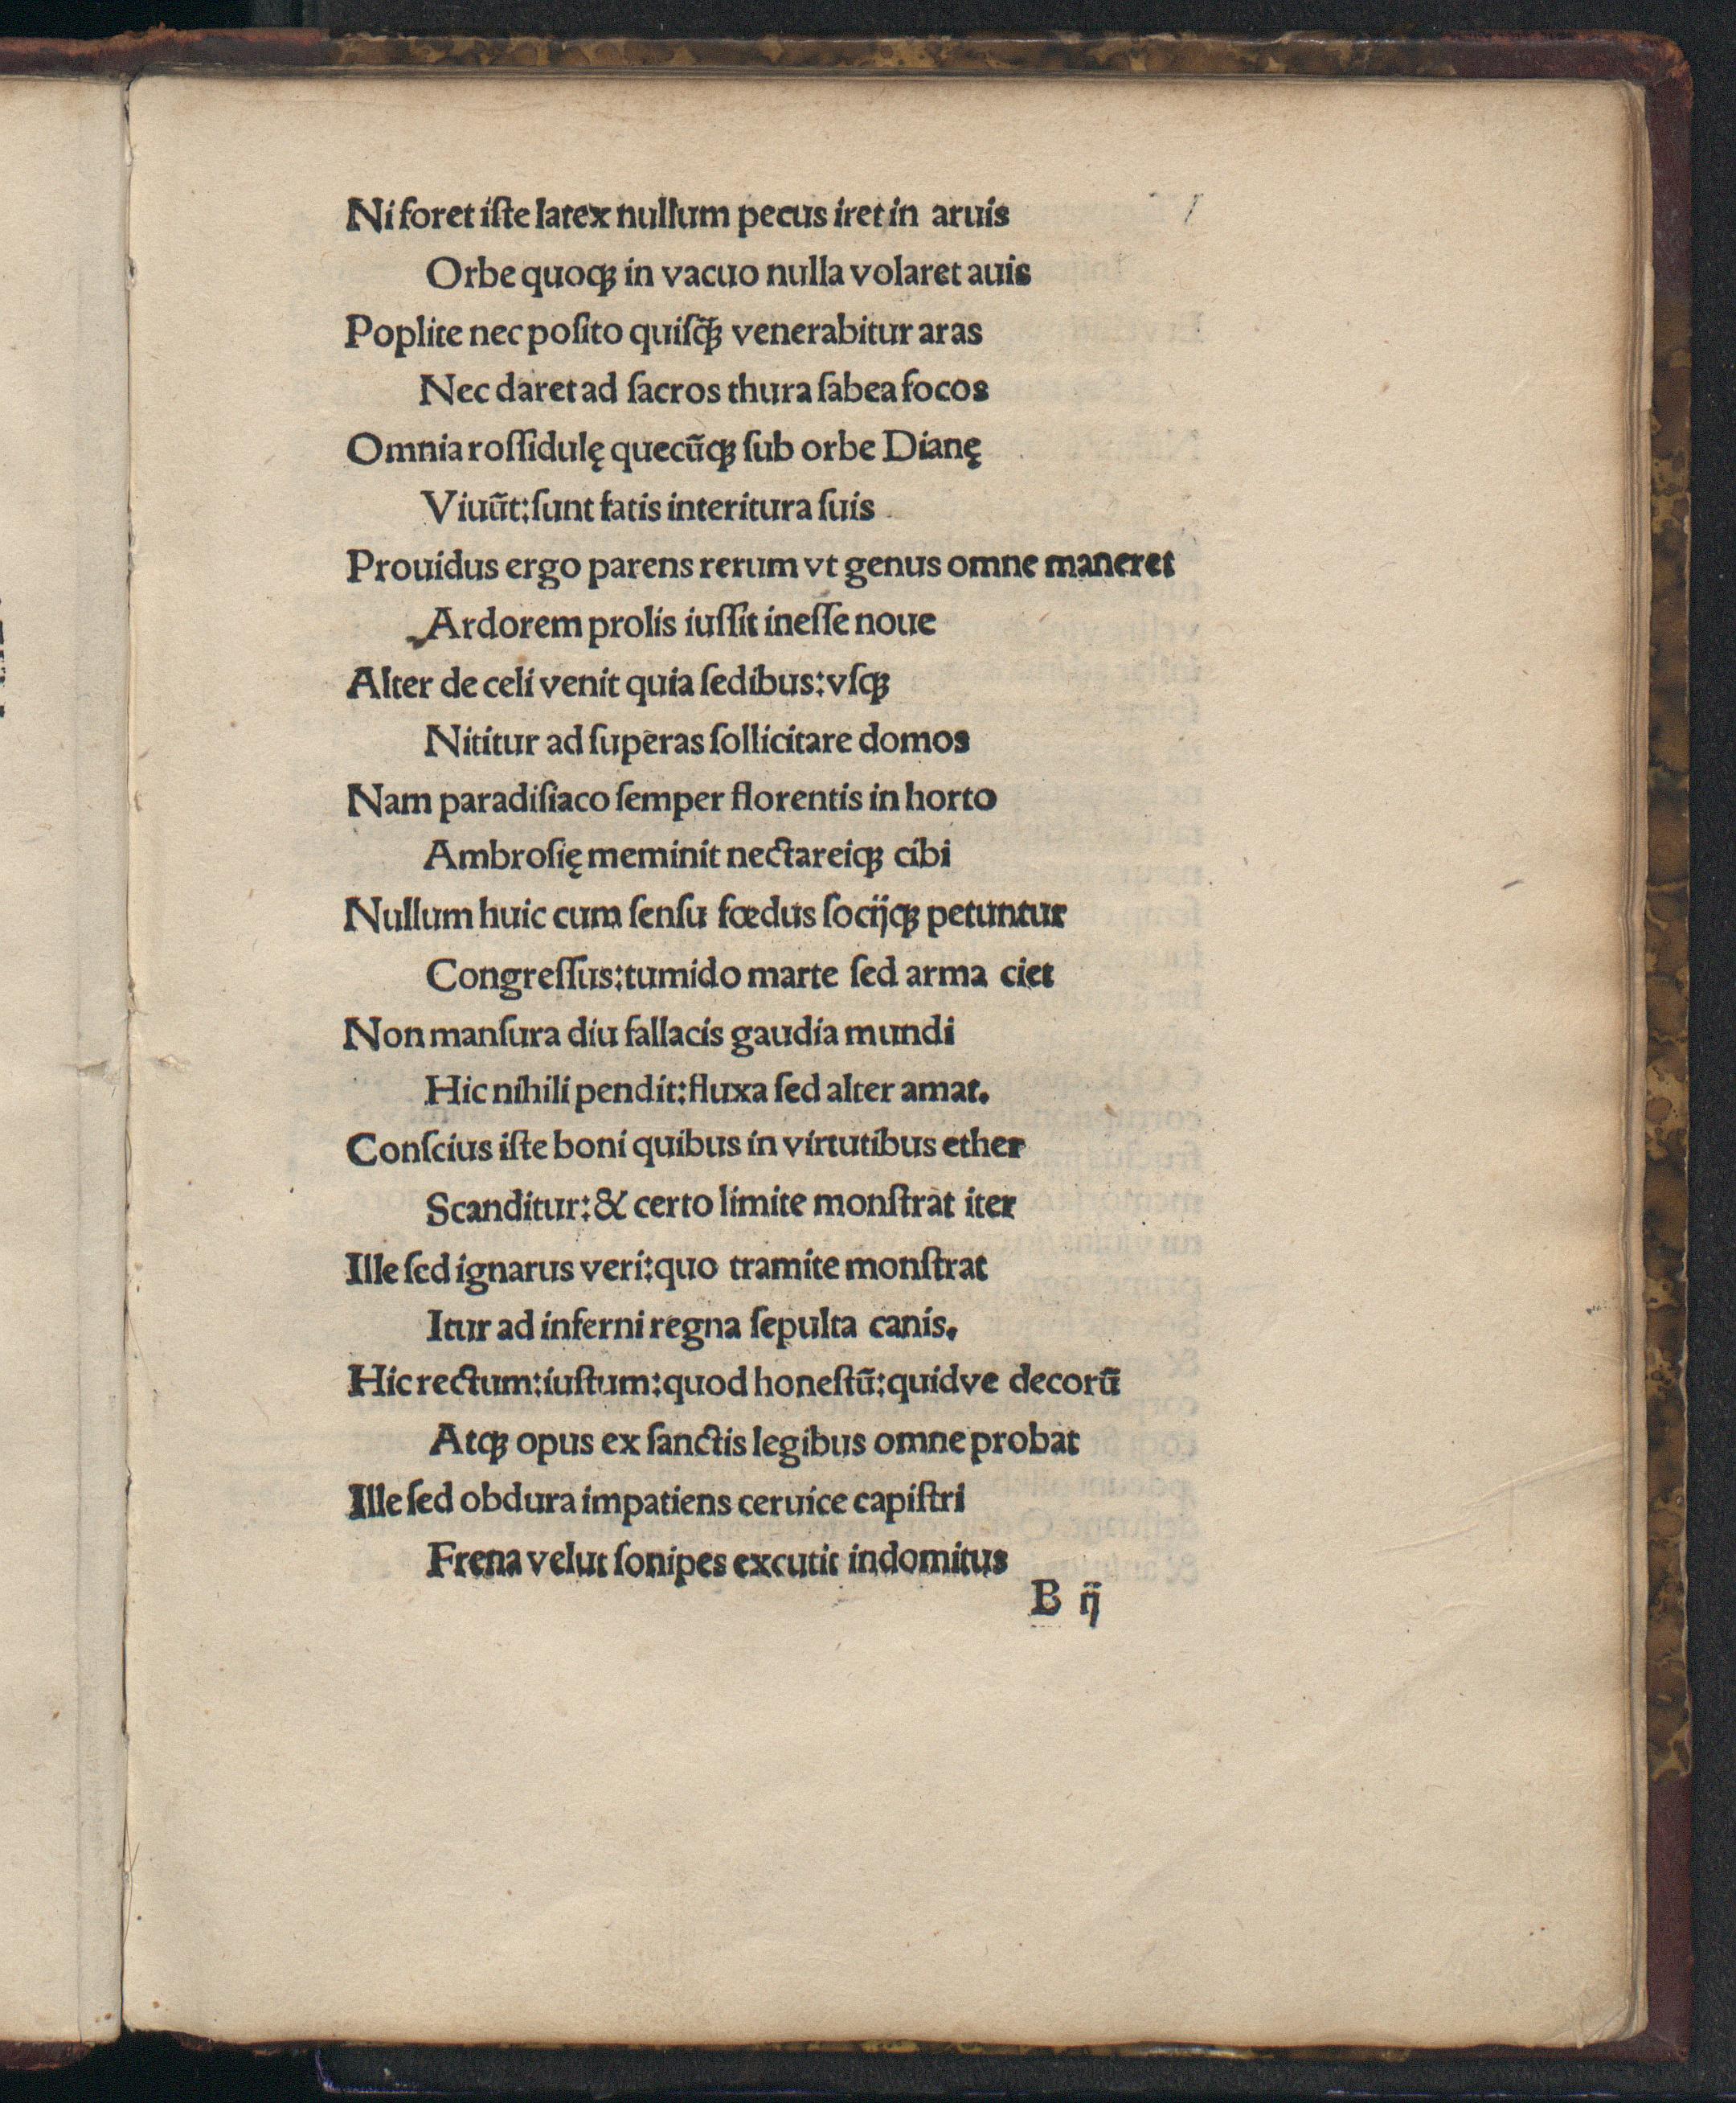 Ni foret iſte latex nullum pecus iret in aruis
Orbe quoqꝫ in vacuo nulla volaret auis
Poplite nec poſito quiſq̃ꝫ venerabitur aras
Nec daret ad ſacros thura ſabea focos
Omnia roſſidulę quecũqꝫ ſub orbe Dianę
Viuũt:ſunt fatis interitura ſuis
Prouidus ergo parens rerum vt genus omne maneret
Ardorem prolis iuſſit ineſſe noue
Alter de celi venit quia ſedibus:vſqꝫ
Nititur ad ſuperas ſollicitare domos
Nam paradiſiaco ſemper florentis in horto
Ambroſię meminit nectareiqꝫ cibi
Nullum huic cum ſenſu fœdus ſocijqꝫ petuntur
Congreſſus:tumido marte ſed arma ciet
Non manſura diu fallacis gaudia mundi
Hic nihili pendit:fluxa ſed alter amat.
Conſcius iſte boni quibus in virtutibus ether
Scanditur:& certo limite monſtrat iter
Ille ſed ignarus veri:quo tramite monſtrat
Itur ad inferni regna ſepulta canis.
Hic rectum:iuſtum:quod honeſtũ:quidve decorũ
Atqꝫ opus ex ſanctis legibus omne probat
Ille ſed obdura impatiens ceruice capiſtri
Frena velut ſonipes excutit indomitus
B ij